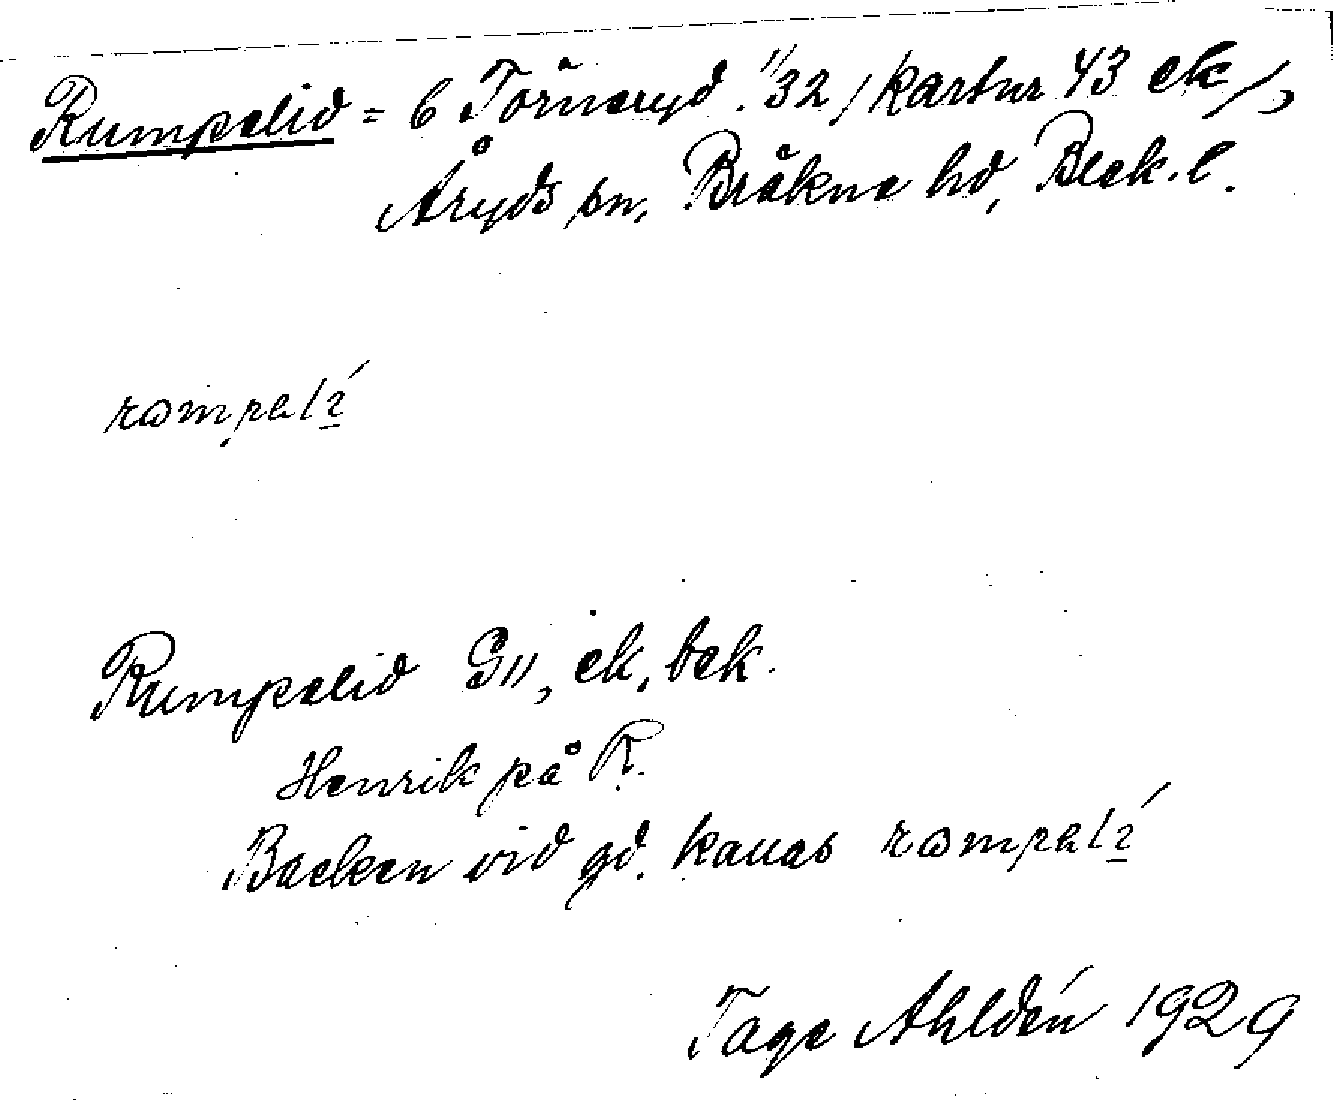 Rumpelid = 6 Törneryd 11/32 /kartnr 43 ek/,
Åryds sn, Bräkne hd, Blek. l.
rompelí
Rumpelid G11, ek, bek.
Henrik på R.
Backen vid gd. kallas rompelí
Tage Ahldén 1929